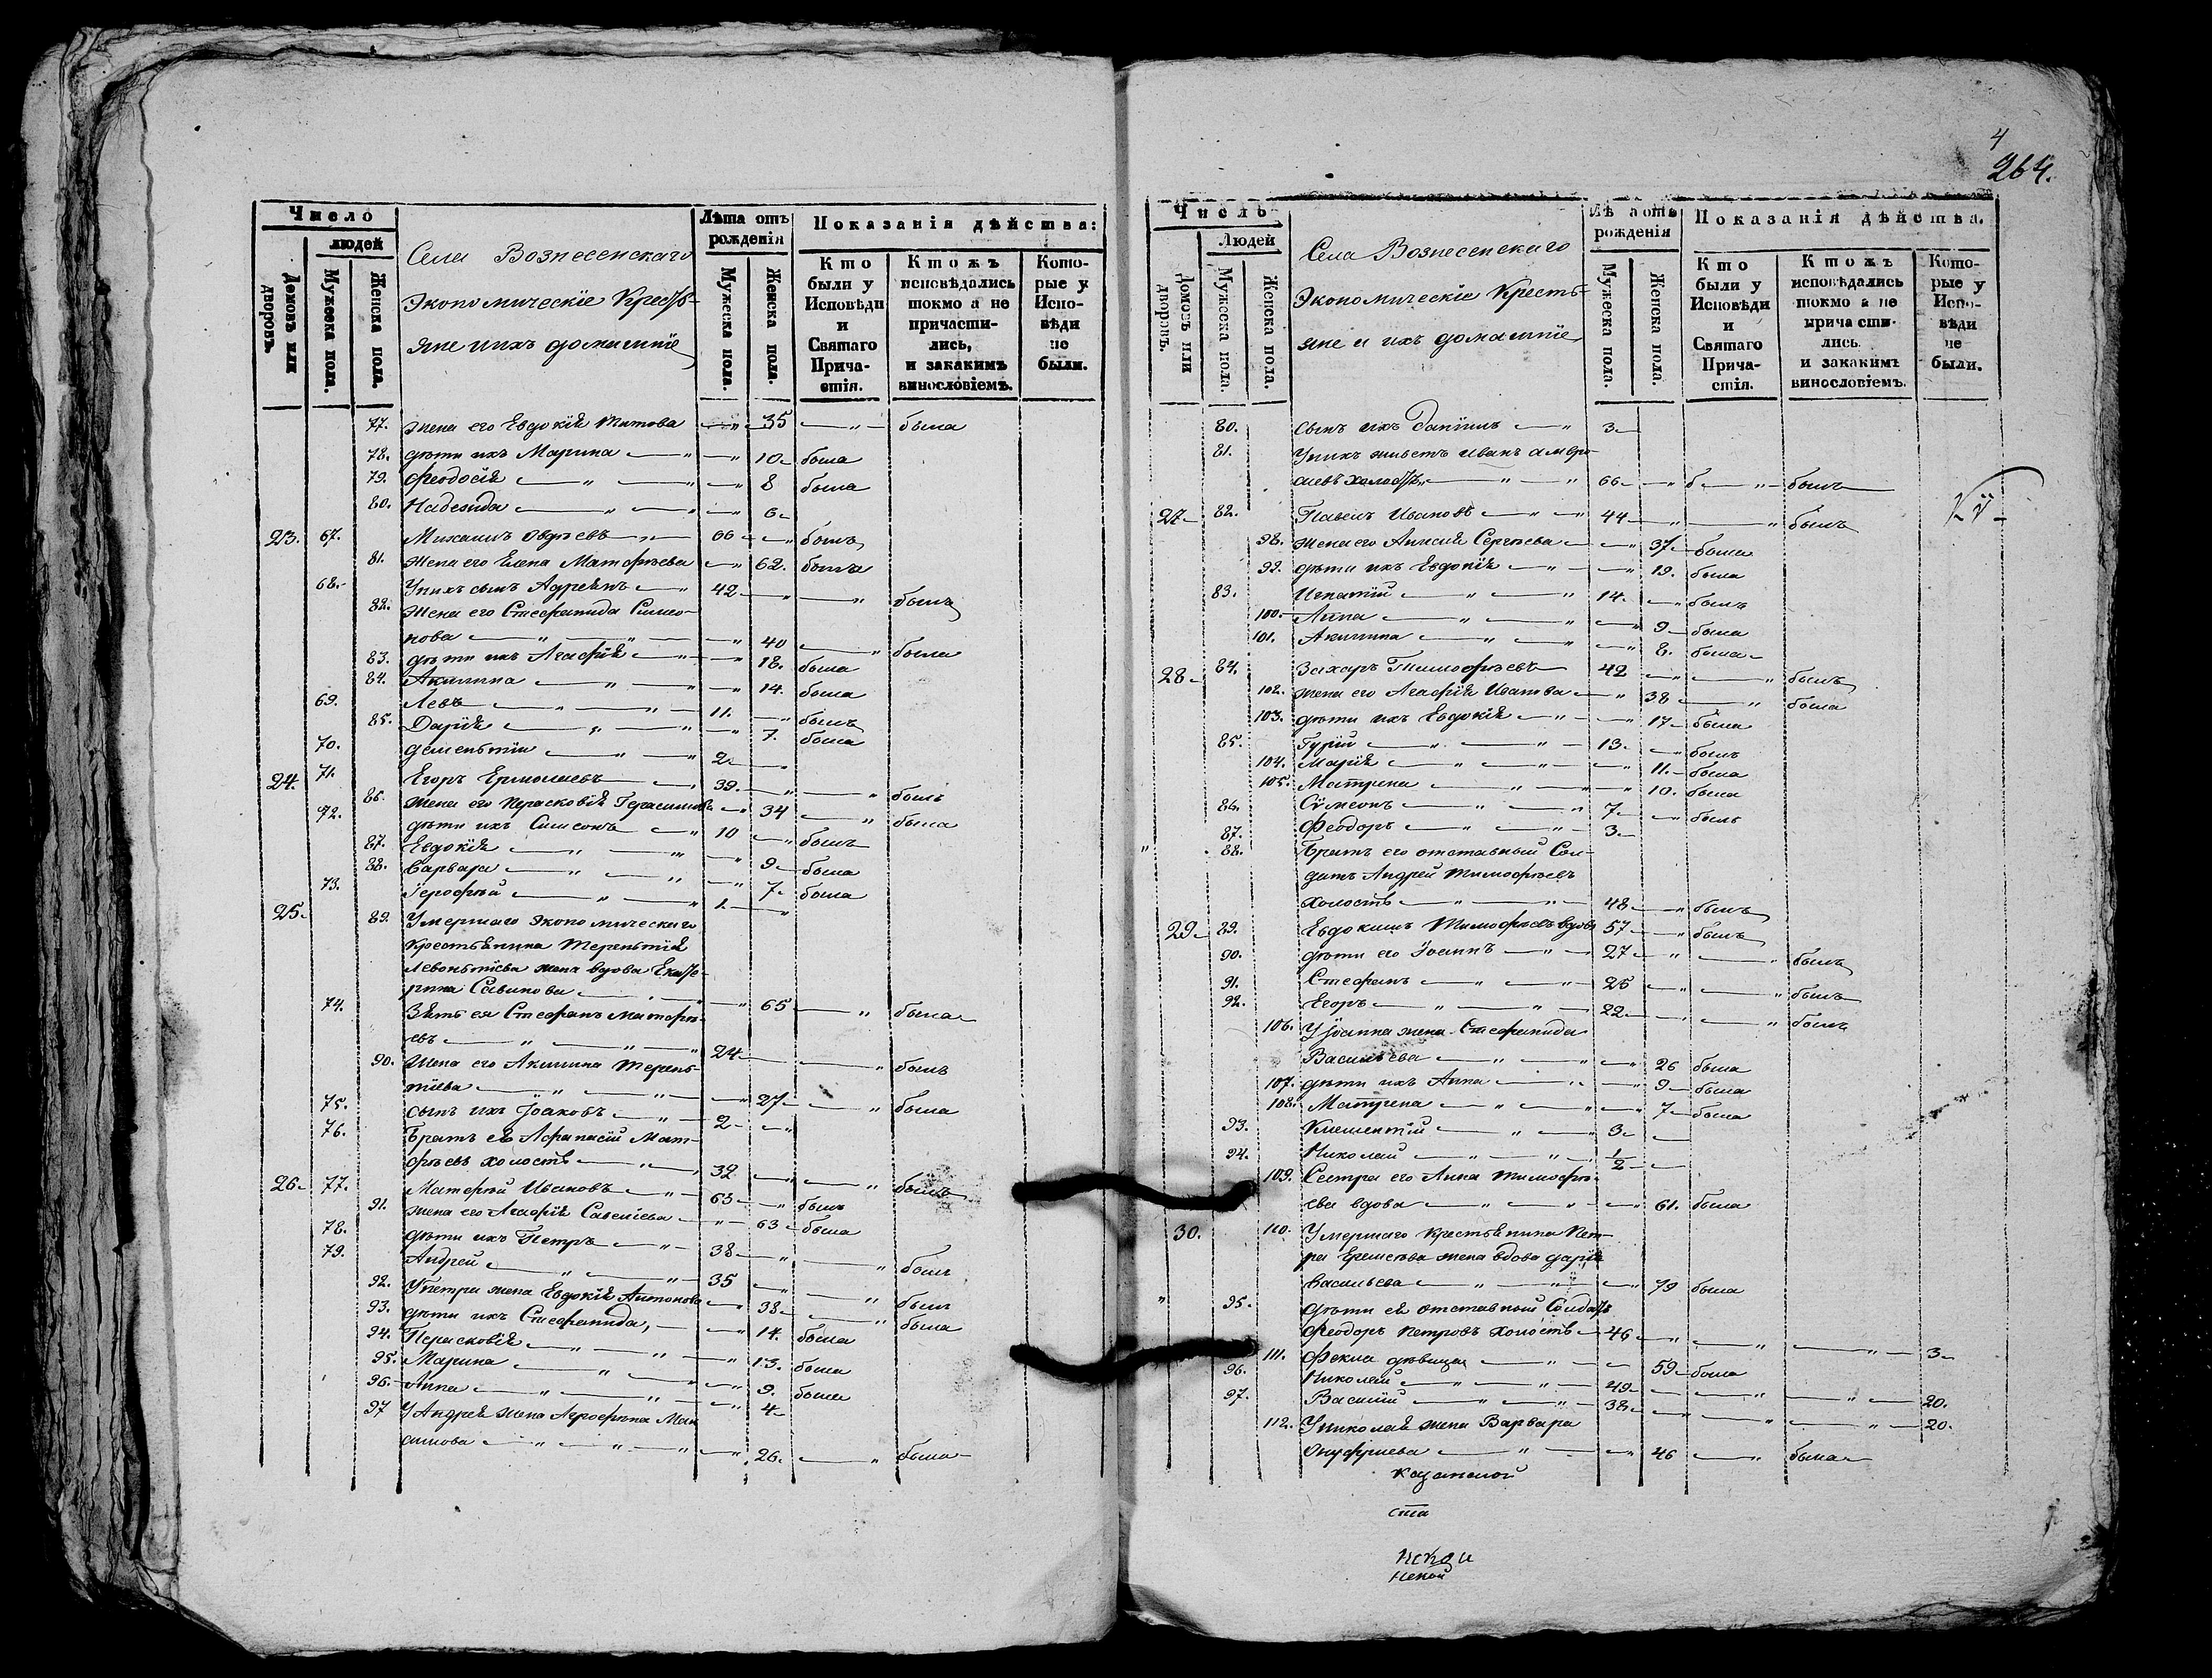 Число
людей
Домовъ или дворовъ.
Мужеска пола.
Женска пола.
Села Вознесенскаго
Экономическіе Кресть-
яне и ихъ домашніе
Лѣта отъ рожденія
Мужеска пола.
Женска пола.
Показанія дѣйства:
Кто были у Исповѣди и Святаго Прича-стія.
Ктожъ исповѣдались токмо а не причасти-лись, и закакимъ винословіемъ.
Кото-рые у Испо-вѣди не были.
77. жена его Евдокія Титова — " 35 — " — была
78. дѣти ихъ Марина — " — " 10 была
79. Феодосія — " — " 8 была
80. Надежда — " — " 6
23. 67. Михаилъ Овдѣевъ — " 66 — " былъ
81. жена его Елена Матфѣева — " 62. была
68. У нихъ сынъ Адреянъ — " 42 — " — " былъ
82. жена его Стефанида Симео-
нова — " — " — " 40 — " была
83. дѣти ихъ Агафія — " — " 18. была
84. Акилина — " — " 14. была
69. Левъ — " — " 11. — " былъ
85. Дарія — " — " 7. была
70. Дементіи — " — " 2 — "
24. 71. Егоръ Ермолаевъ — " 39 — " — " былъ
86. жена его Парасковія Герасимова — " 34 — " была
72. дѣти ихъ Симеонъ — " 10 — " былъ
87. Евдокія — " — " 9 — была
88. Варвара — " — " 7. была
73. Іерофѣй — " — " 1 — "
25. 89. Умершаго экономическаго
крестьянина Терентія
Левонтіева жена вдова Екате-
рина Савинова — " — " 65 — " была
74. Зять ея Стефанъ Матфѣ-
евъ — " — " — " 24 — " былъ
90. Жена его Акилина Терень-
тіева — " — " — " 27 — " была
75. сынъ ихъ Іоаковъ — " 2 — "
76. Братъ его Афанасій Мат-
фѣевъ холостъ — " 32 — " — " былъ
26. 77. Матфѣй Ивановъ — " 63 — " былъ
91. жена его Агафія Савельева — " 63 — была
78. дѣти ихъ Петръ — " 38 — " — " былъ
79. Андрей — " — " 35 — " — " былъ
92. У Петра жена Евдокія Антонова — " 38 — " была
93. дѣти ихъ Стефанида, — " 14. была
94. Парасковія — " — " 13. была
95. Марина — " — " 9. была
96. Анна — " — " 4
97 У Андрея жена Агрофѣна Мак-
симова — " — " — " 26. — " была
4
264.
Число
Людей
Домовъ или дворовъ.
Мужеска пола.
Женска пола.
Села Вознесенскаго
Экономическіе Кресть-
яне и ихъ домашніе
Лѣта отъ рожденія
Мужеска пола.
Женска пола.
Показанія дѣйства.
Кто были у Исповѣди и Святаго Прича-стія.
Ктожъ исповѣдались токмо а не причасти-лись. и закакимъ винословіемъ.
Кото-рые у Испо-вѣди не были.
80. сынъ ихъ Даніилъ — " 3
81. У нихъ живетъ Иванъ Амвро-
сиевъ холостъ — " — " 66 — " былъ
27 82. Павелъ Ивановъ — " — " 44 — " — " былъ
98. жена его Анисия Сергѣева — " 37 — была
92. дѣти ихъ Евдокія — " — " 19. была
83. Игнатій — " — " 14. — " былъ
100. Анна — " — " 9 — была
101. Акилина — " — " 8. была
28 84. Захаръ Тимофѣевъ — 42 — " — " былъ
102. жена его Агафія Иванова — " 38 — " была
103. дѣти ихъ Евдокія — " — " 17 — была
85. Гурій — " — " 13. — " былъ
104. Марія — " — " 11. — была
105. Матрена — " — " 10. была
86. Сѵмеонъ — " — " 7 — " былъ
87. Феодоръ — " — " 3
" 88. Братъ его отставный Сол-
датъ Андрей Тимофѣевъ
холостъ — " — " 48 — " былъ
29 89. Евдокимъ Тимофѣевъ вдовъ 57 — " былъ
90. дѣти его Іоаннъ — " 27 — " — " былъ
91. Стефанъ — " — " 25 — " — " былъ
92. Егоръ — " — " 22 — " — " былъ
106. У Іоанна жена Стефанида
Васильева — " — " — " 26 была
107. дѣти ихъ Анна — " — " 9 — была
108. Матрена — " — " 7 — была
93. Климентій — " — " 3 —
94. Николай — " — " 1/2 —
109. Сестра его Анна Тимофѣ-
ева вдова — " — " — " 61. была
30. 110. Умершаго крестьянина Пет-
ра Еремеева жена вдова Дарія
Васильева — " — " — " 79 была
" 95. дѣти ея отставный Солдатъ
Феодоръ Петровъ холостъ 46 — " — " — " 3
111. Фекла дѣвица — " — " 59 — была
96. Николай — " — " 49 — " — " 20.
97. Василій — " — " 38 — " — " 20.
112. У Николая жена Варвара
Онуфриева — " — " 46 — " была
казанской
ста